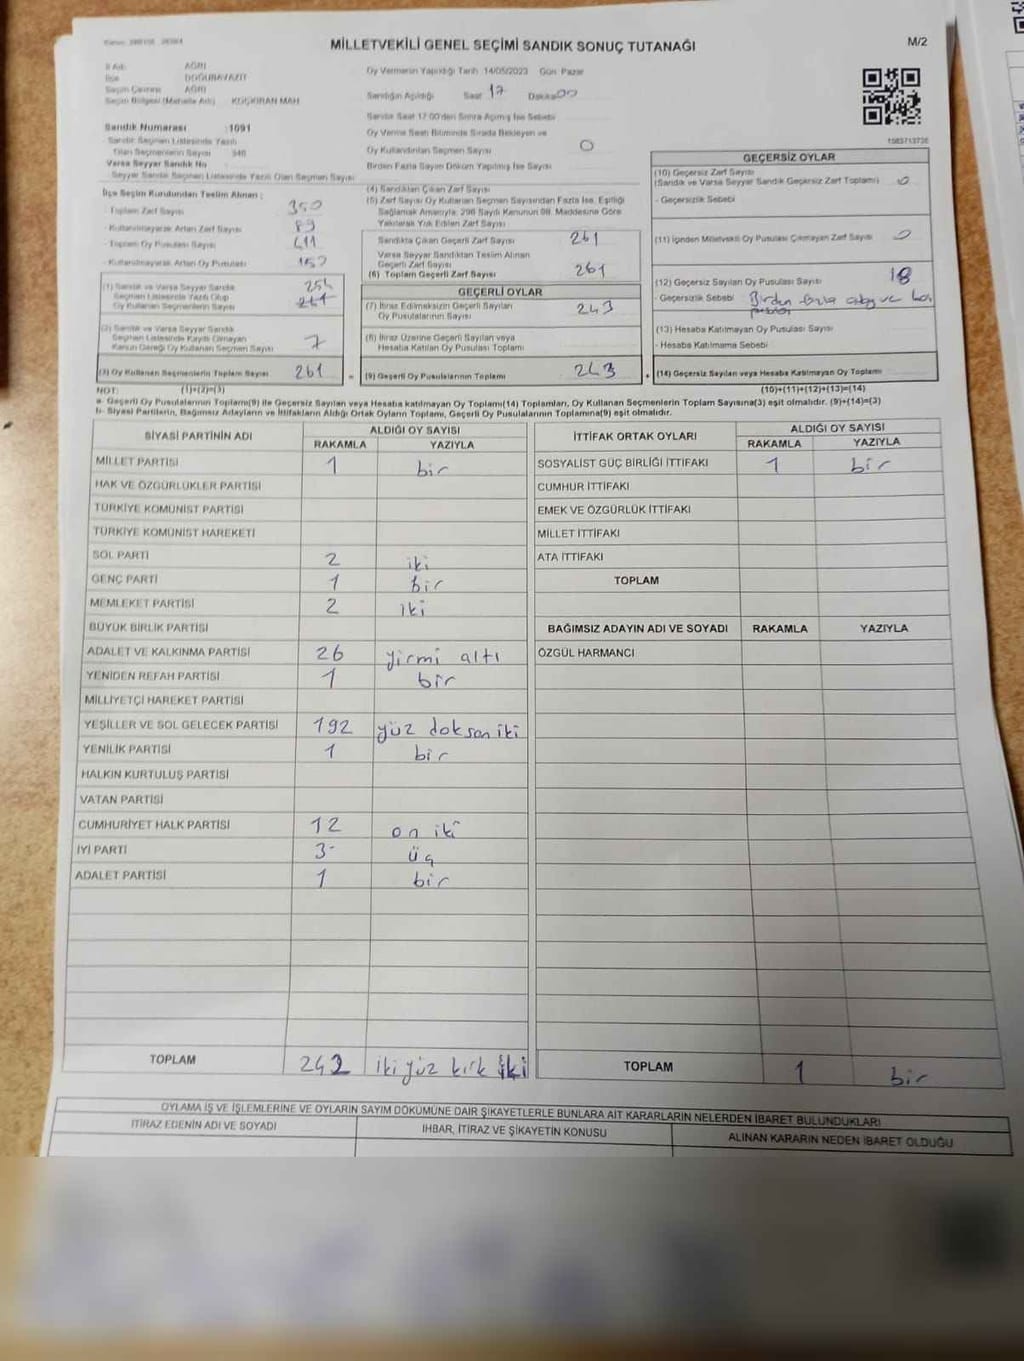 MİLLETVEKİLİ GENEL SEÇİMİ SANDIK SONUÇ TUTANAĞI
M/2
İli Adı: AĞRI
İlçe DOĞUBAYAZIT
Seçim Çevresi AĞRI
Seçim Bölgesi (Mahalle Adı) KOÇKIRAN MAH
Sandık Numarası :1091
Sandık Seçmen Listesinde Yazılı
Olan Seçmenlerin Sayısı 340
Varsa Seyyar Sandık No
Seyyar Sandık Seçmen Listesinde Yazılı Olan Seçmen Sayısı
Oy Vermenin Yapıldığı Tarih 14/05/2023 Gün Pazar
Sandığın Açıldığı Saat 17 Dakika 00
Sandık Saat 17:00'den Sonra Açılmış İse Sebebi
Oy Verme Saati Bitiminde Sırada Bekleyen ve
Oy Kullandırılan Seçmen Sayısı 0
Birden Fazla Sayım Döküm Yapılmış İse Sayısı
1583713736
İlçe Seçim Kurulundan Teslim Alınan :
- Toplam Zarf Sayısı 350
- Kullanılmayarak Artan Zarf Sayısı 89
- Toplam Oy Pusulası Sayısı 411
- Kullanılmayarak Artan Oy Pusulası
(1) Sandık ve Varsa Seyyar Sandık
Seçmen Listesinde Yazılı Olup
Oy Kullanan Seçmenlerin Sayısı 254
(2) Sandık ve Varsa Seyyar Sandık
Seçmen Listesinde Kayıtlı Olmayan
Kanun Gereği Oy Kullanan Seçmen Sayısı 7
(3) Oy Kullanan Seçmenlerin Toplam Sayısı 261
(4) Sandıktan Çıkan Zarf Sayısı
(5) Zarf Sayısı Oy Kullanan Seçmen Sayısından Fazla İse, Eşitliği
Sağlamak Amacıyla, 298 Sayılı Kanunun 98. Maddesine Göre
Yakılarak Yok Edilen Zarf Sayısı
Sandıkta Çıkan Geçerli Zarf Sayısı 261
Varsa Seyyar Sandıktan Teslim Alınan
Geçerli Zarf Sayısı
(6) Toplam Geçerli Zarf Sayısı 261
GEÇERLİ OYLAR
(7) İtiraz Edilmeksizin Geçerli Sayılan
Oy Pusulalarının Sayısı 243
(8) İtiraz Üzerine Geçerli Sayılan veya
Hesaba Katılan Oy Pusulası Toplamı
= (9) Geçerli Oy Pusulalarının Toplamı 243
GEÇERSİZ OYLAR
(10) Geçersiz Zarf Sayısı
(Sandık ve Varsa Seyyar Sandık Geçersiz Zarf Toplamı) 0
- Geçersizlik Sebebi
(11) İçinden Milletvekili Oy Pusulası Çıkmayan Zarf Sayısı 0
(12) Geçersiz Sayılan Oy Pusulası Sayısı 18
- Geçersizlik Sebebi Birden fazla ve
(13) Hesaba Katılmayan Oy Pusulası Sayısı
- Hesaba Katılmama Sebebi
+ (14) Geçersiz Sayılan veya Hesaba Katılmayan Oy Toplamı
NOT: (1)+(2)=(3) (10)+(11)+(12)+(13)=(14)
a- Geçerli Oy Pusulalarının Toplamı(9) ile Geçersiz Sayılan veya Hesaba katılmayan Oy Toplamı(14) Toplamları, Oy Kullanan Seçmenlerin Toplam Sayısına(3) eşit olmalıdır. (9)+(14)=(3)
b- Siyasi Partilerin, Bağımsız Adayların ve İttifakların Aldığı Ortak Oyların Toplamı, Geçerli Oy Pusulalarının Toplamına(9) eşit olmalıdır.
SİYASİ PARTİNİN ADI ALDIĞI OY SAYISI
RAKAMLA YAZIYLA
MİLLET PARTİSİ 1 bir
HAK VE ÖZGÜRLÜKLER PARTİSİ
TÜRKİYE KOMÜNİST PARTİSİ
TÜRKİYE KOMÜNİST HAREKETİ
SOL PARTİ 2 iki
GENÇ PARTİ 1 bir
MEMLEKET PARTİSİ 2 iki
BÜYÜK BİRLİK PARTİSİ
ADALET VE KALKINMA PARTİSİ 26 yirmi altı
YENİDEN REFAH PARTİSİ 1 bir
MİLLİYETÇİ HAREKET PARTİSİ
YEŞİLLER VE SOL GELECEK PARTİSİ 192 yüz doksan iki
YENİLİK PARTİSİ 1 bir
HALKIN KURTULUŞ PARTİSİ
VATAN PARTİSİ
CUMHURİYET HALK PARTİSİ 12 on iki
İYİ PARTİ 3 üç
ADALET PARTİSİ 1 bir
TOPLAM 242 iki yüz kırk iki
İTTİFAK ORTAK OYLARI ALDIĞI OY SAYISI
RAKAMLA YAZIYLA
SOSYALİST GÜÇ BİRLİĞİ İTTİFAKI 1 bir
CUMHUR İTTİFAKI
EMEK VE ÖZGÜRLÜK İTTİFAKI
MİLLET İTTİFAKI
ATA İTTİFAKI
TOPLAM
BAĞIMSIZ ADAYIN ADI VE SOYADI RAKAMLA YAZIYLA
ÖZGÜL HARMANCI
TOPLAM 1 bir
OYLAMA İŞ VE İŞLEMLERİNE VE OYLARIN SAYIM DÖKÜMÜNE DAİR ŞİKAYETLERLE BUNLARA AİT KARARLARIN NELERDEN İBARET BULUNDUKLARI
İTİRAZ EDENİN ADI VE SOYADI İHBAR, İTİRAZ VE ŞİKAYETİN KONUSU ALINAN KARARIN NEDEN İBARET OLDUĞU